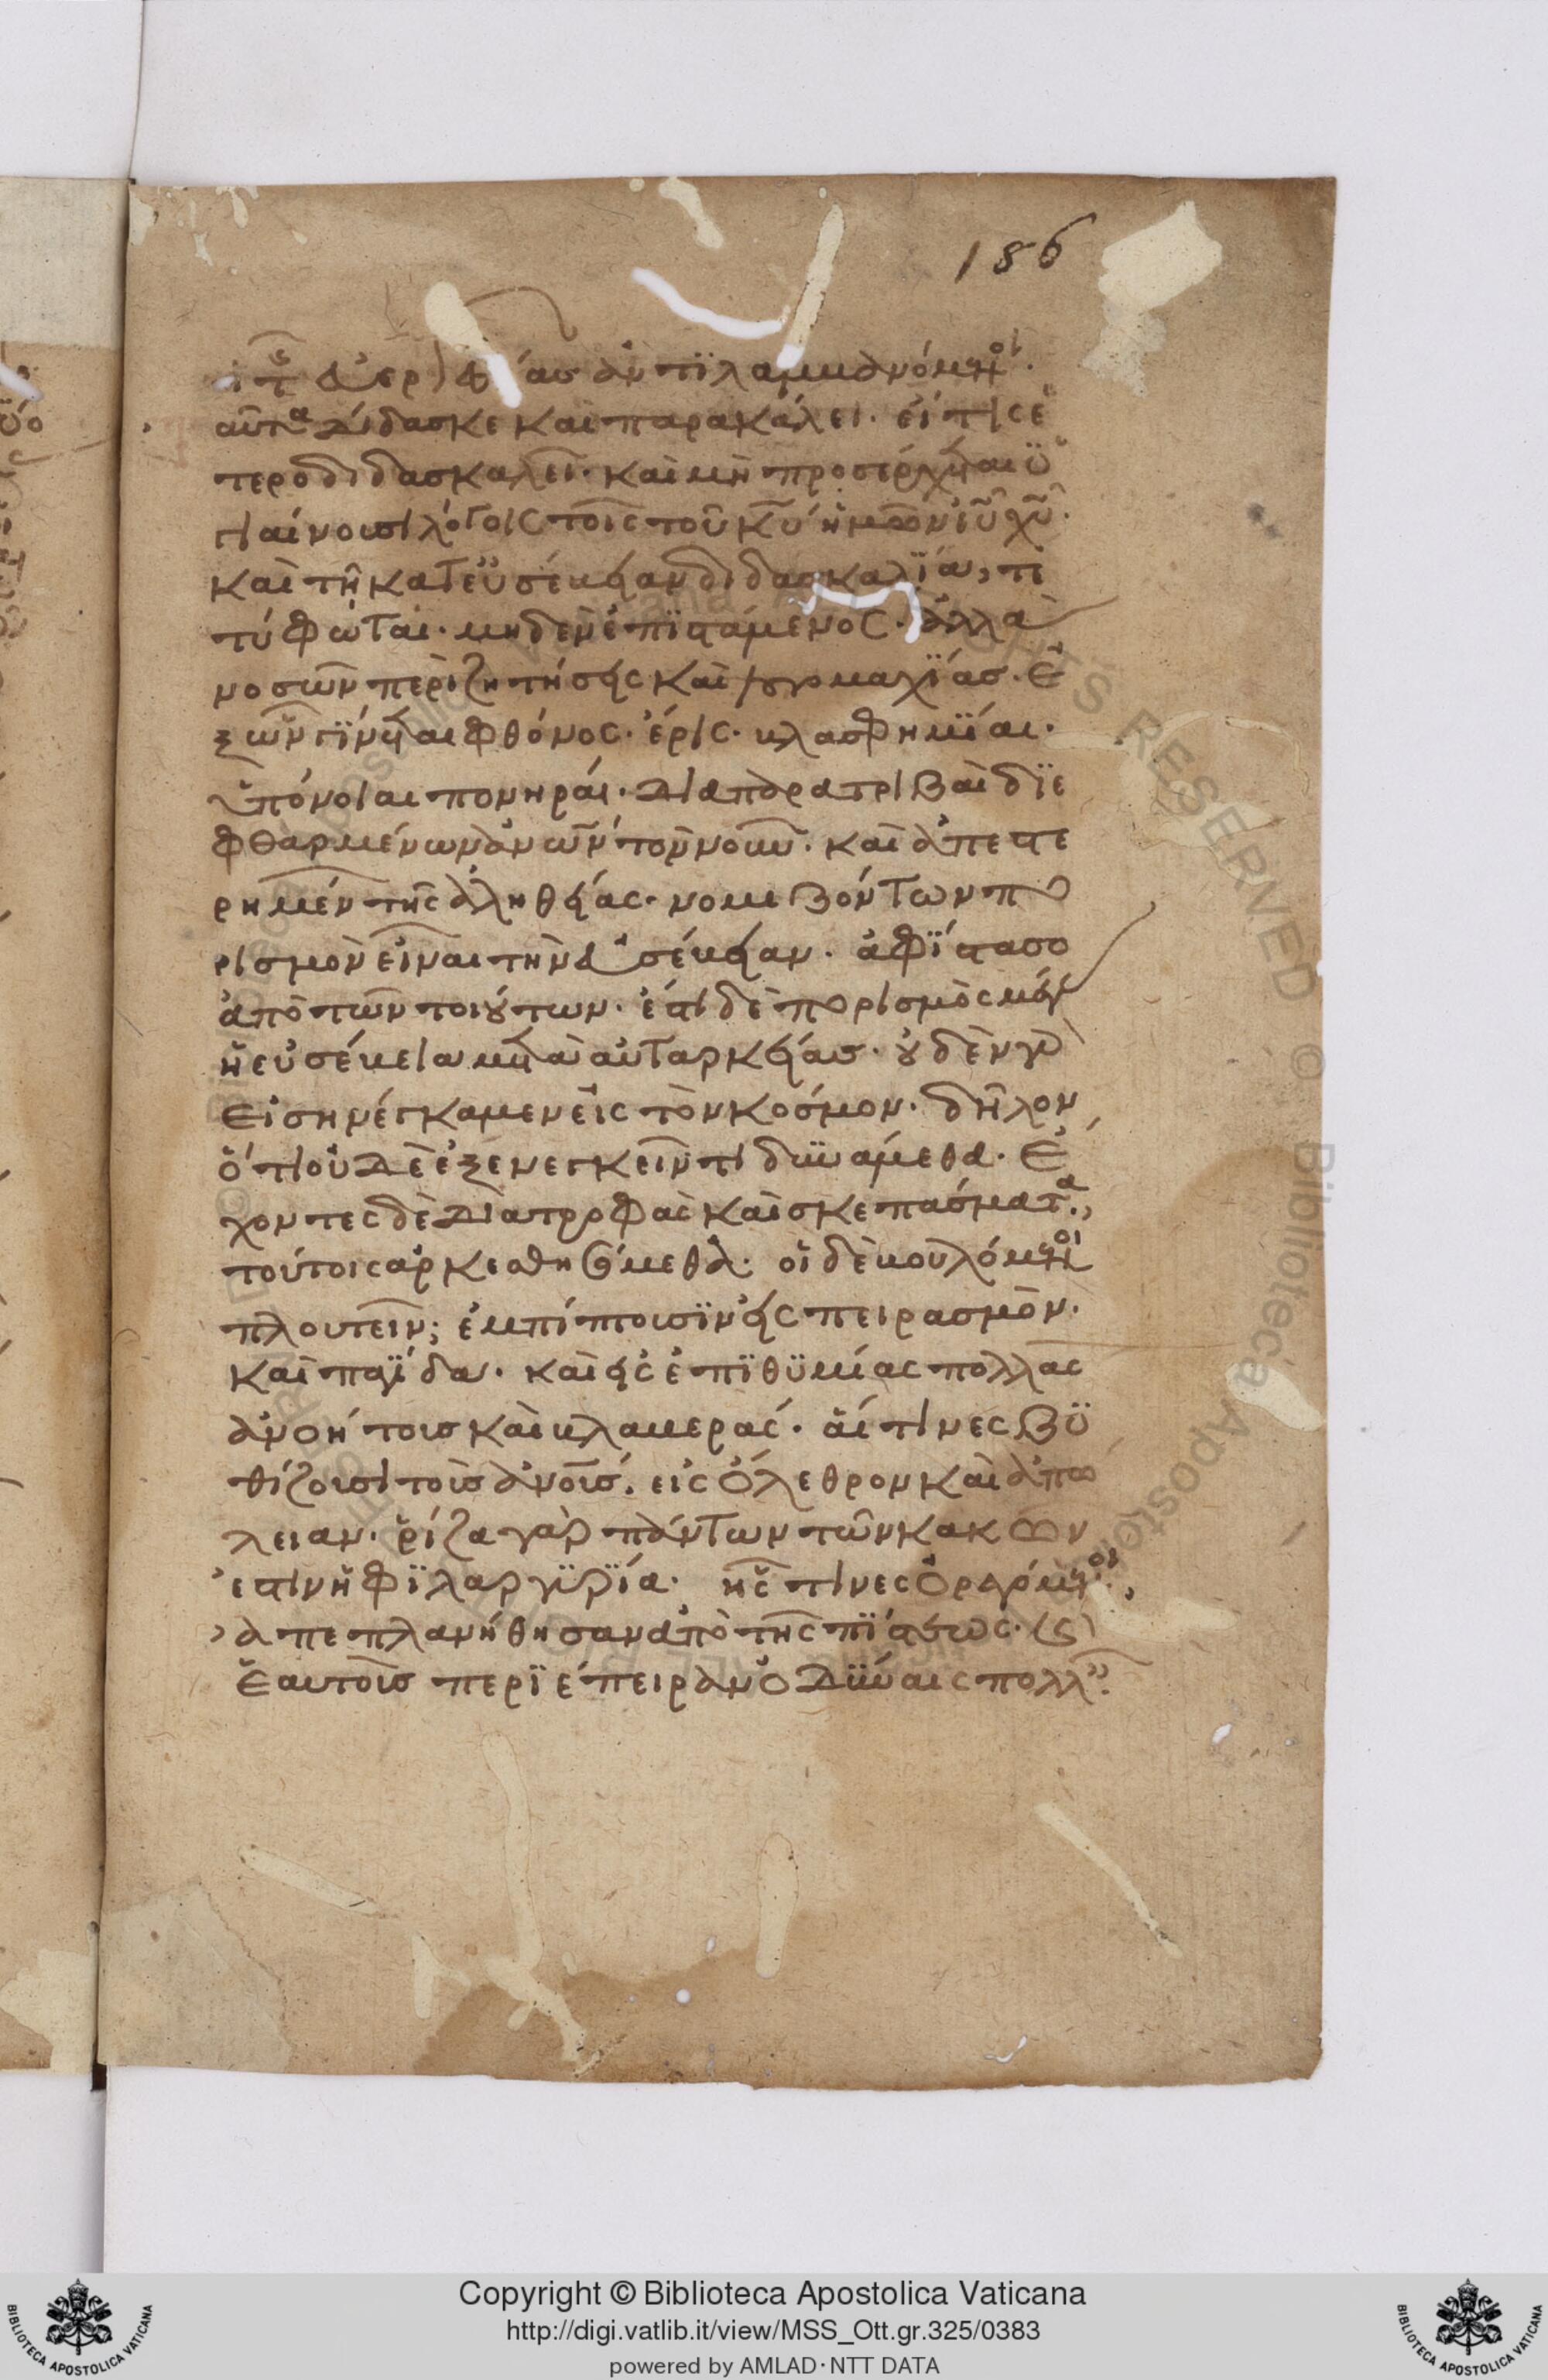 186
οἱ τῆς εὐεργεσίας ἀντϊλαμβανόμενοι.
αῦτα δίδασκε καὶ παρακάλει. εἴ τις ἑ
τεροδιδασκαλεῖ. καὶ μὴ προσέρχεται ὑ
γιαίνουσι λόγοις τοῖς τοῦ κ̅υ̅ ἡμῶν ι̅υ̅ χ̅υ̅.
καὶ τῆ κατευσέβειαν διδασκαλΐα, τε
τύφωται. μηδὲν ἐπϊστάμενος. ἀλλὰ
νοσῶν περὶ ζητήσεις καὶ λογομαχΐας. ἐ
ξ ὧν γΐνεται φθόνος. ἔρις. βλασφημΐαι.
ὑπόνοιαι πονηραί. διαπαρατριβαὶ δϊε
φθαρμένων ἀνῶν τὸν νοῦν. καὶ ἀπεστε
ρημέν τῆς ἀληθείας. νομιζόντων πο
ρισμὸν εἶναι τὴν εὐσέβειαν. ἀφΐστασο
ἀπὸ τῶν τοιούτων. ἔστι δὲ πορισμὸς μέγας
ἡ εὐσέβεια μετὰ αὐταρκείας. οὐδὲν γὰρ
εἰσηνέγκαμεν εἰς τὸν κόσμον. δῆλον
ὅτι οὐδὲ ἐξενεγκεῖν τι δυνάμεθα. ἔ
χοντες δὲ διατροφὰς καὶ σκεπάσματα,
τούτοις ἀρκεσθησόμεθα. οἱ δὲ βουλόμενοι
πλουτεῖν; ἐμπίπτουσϊν εἰς πειρασμὸν.
καὶ παγΐδα. καὶ εἰς ἐπϊθϋμίας πολλὰς
ἀνοήτους καὶ βλαβεράς. αἵ τινες βϋ
θίζουσι τοὺς ἀνους. εἰς ὄλεθρον καὶ ἀπώ
λειαν. ῥίζα γὰρ πάντων τῶν κακῶν
ἐστιν ἡ φϊλαργϋρΐα. ἧς τινες ὀρεγόμενοι,
ἀπεπλανήθησαν ἀπὸ τῆς πΐστεως. καὶ
ἑαυτοὺς περϊέπειραν ὀδϋναις πολλαῖς.
Copyright © Biblioteca Apostolica Vaticana
http://digi.vatlib.it/view/MSS_Ott.gr.325/0383
powered by AMLAD·NTT DATA
BIBLIOTECA APOSTOLICA VATICANA
BIBLIOTECA APOSTOLICA VATICANA